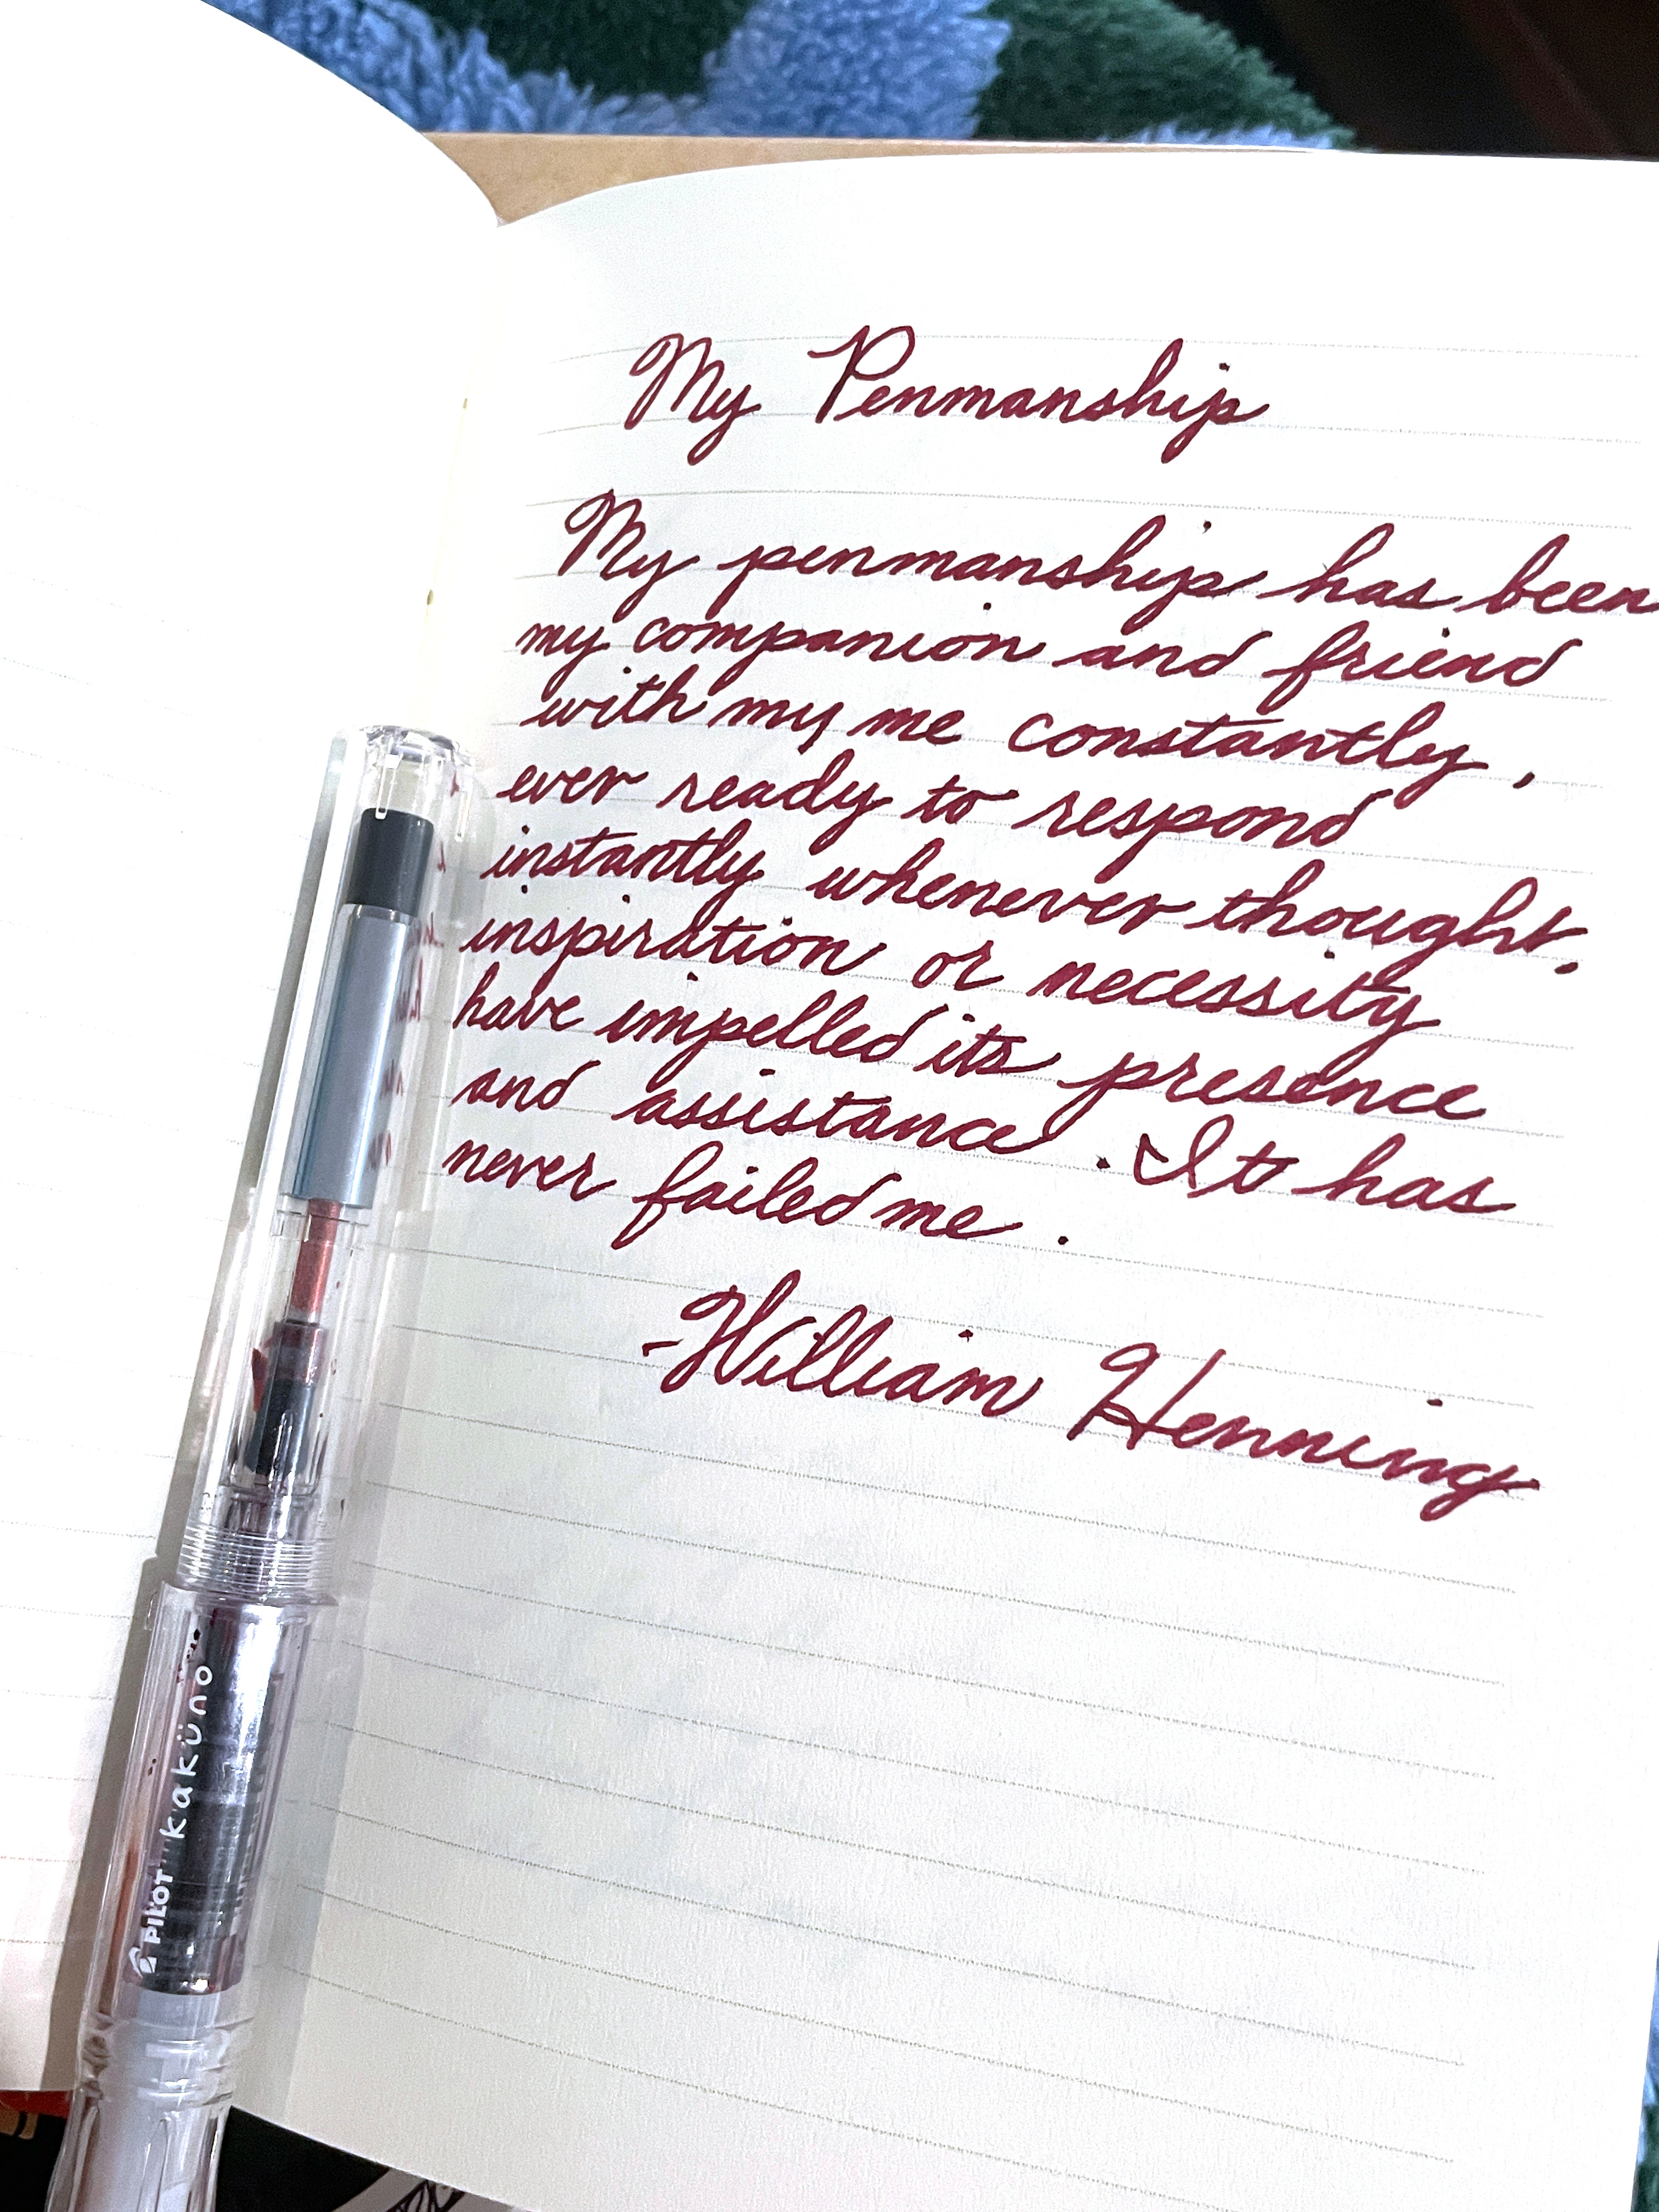 My Penmanship
My penmanship has been
my companion and friend
with my me constantly,
ever ready to respond
instantly whenever thought,
inspiration or necessity
have impelled its presence
and assistance. It has
never failed me.
-William Henning
PILOT kaküno